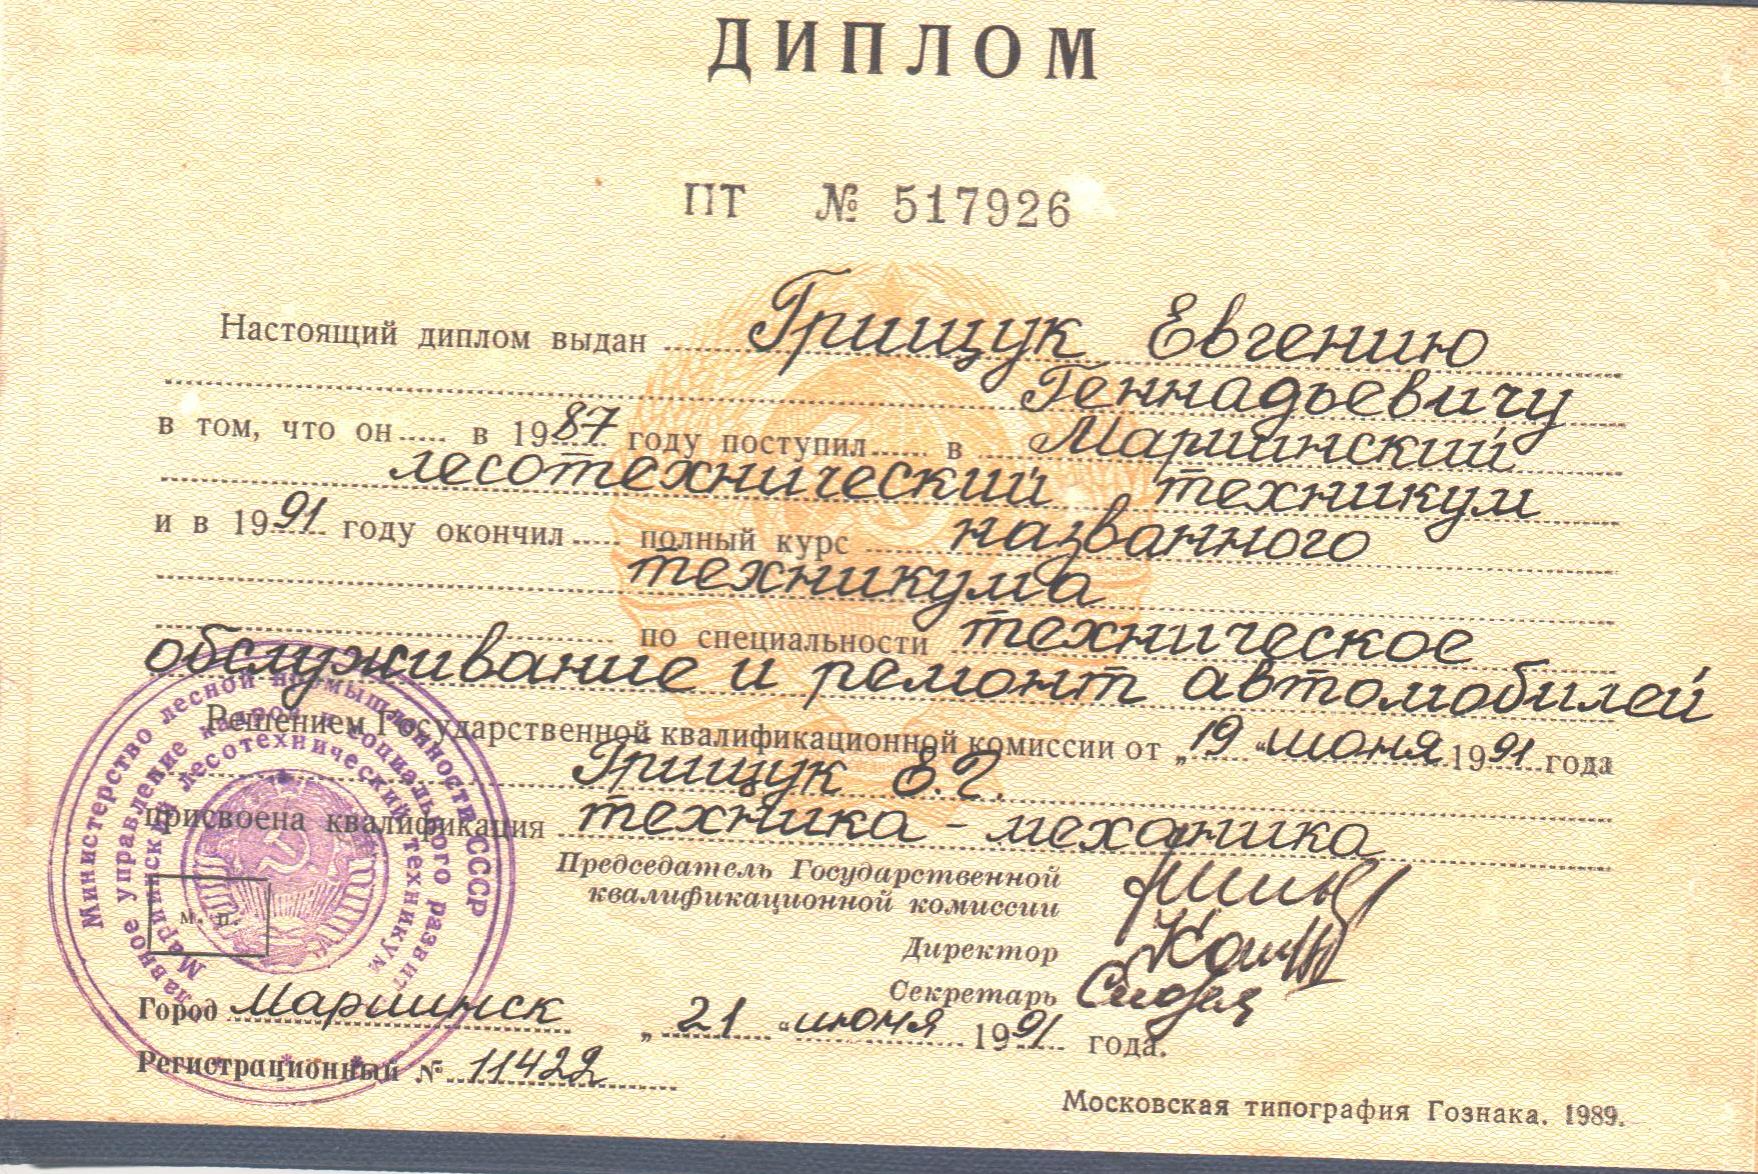 ДИПЛОМ
ПТ № 517926
Настоящий диплом выдан Грищук Евгению
Геннадьевичу
в том, что он в 1987 году поступил в Мариинский
лесотехнический техникум
и в 1991 году окончил полный курс названного
техникума
по специальности техническое
обслуживание и ремонт автомобилей
Решением Государственной квалификационной комиссии от „19“ июня 1991 года
Грищук Е.Г.
присвоена квалификация техника-механика
Председатель Государственной
квалификационной комиссии
Директор
Секретарь
м. п.
Город Мариинск „21“ июня 1991 года.
Регистрационный № 11422
Московская типография Гознака. 1989.
Министерство лесной промышленности СССР
главное управление кадров и социального развит
Мариинский лесотехнический техникум